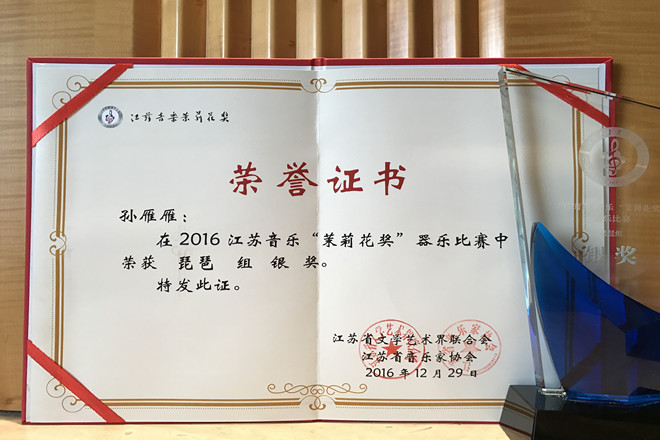 江苏音乐茉莉花奖
荣誉证书
孙雁雁：
在2016江苏音乐“茉莉花奖”器乐比赛中
荣获 琵琶 组 银 奖。
特发此证。
江苏省文学艺术界联合会
江苏省音乐家协会
2016年12月29日
奖